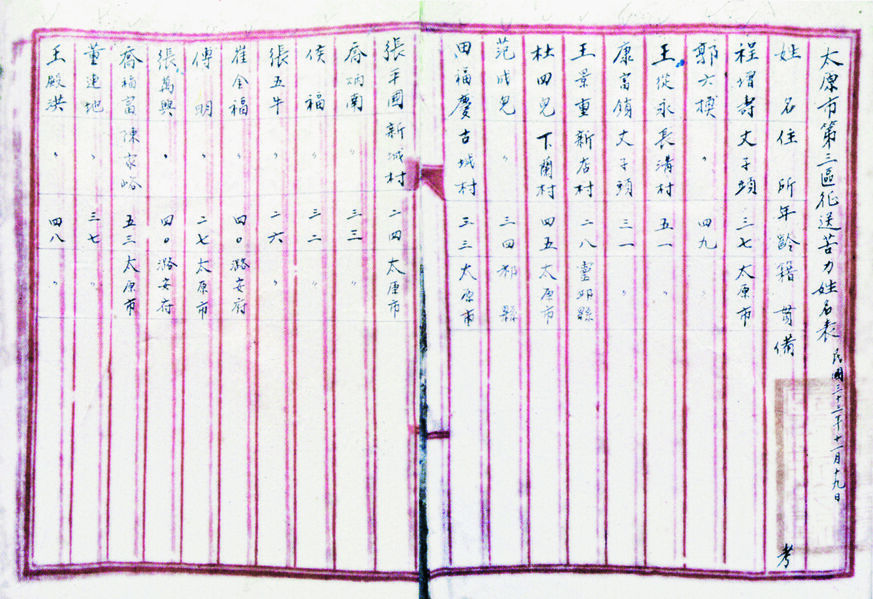 太原市第三區征送苦力姓名表 民國三十三年十二月十九日
姓名 住所 年齡 籍貫 備考
程增壽 丈子頭 三七 太原市
郭六模 〃 四九
王從永 長溝村 五一 〃
康富傎 丈子頭 三一 〃
王景重 新店村 二八 靈邱縣
杜四兒 下蘭村 四五 太原市
范成兒 〃 三四 祁縣
田福慶 古城村 五三 太原市
張年國 新城村 二四 太原市
喬炳南 〃 三三 〃
侯福 〃 三二 〃
張五牛 〃 二六 〃
崔全福 〃 四〇 潞安府
傅明 〃 二七 太原市
張萬興 〃 四〇 潞安府
喬福富 陳家峪 五三 太原市
董連地 〃 三七 〃
王殿洪 〃 四八 〃